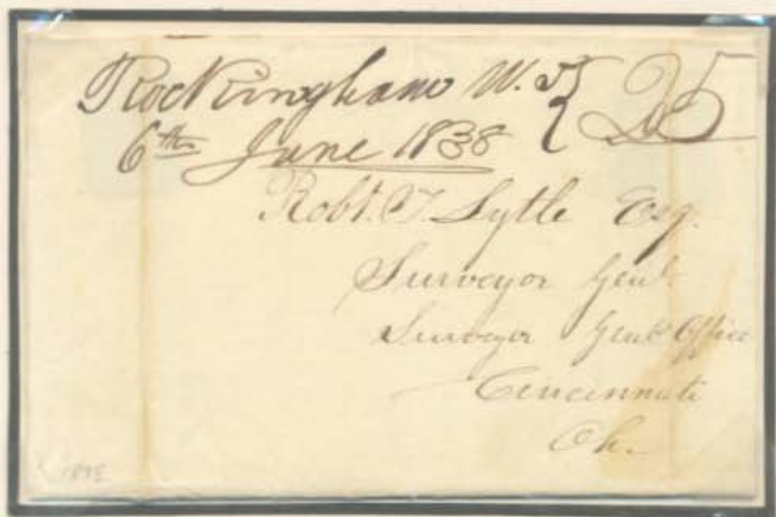 Rockingham W. T. } 25
6th June 1838
Robt. T. Lytle Esq.
Surveyor Genl.
Surveyor Genls Office
Cincinnati
Oh.